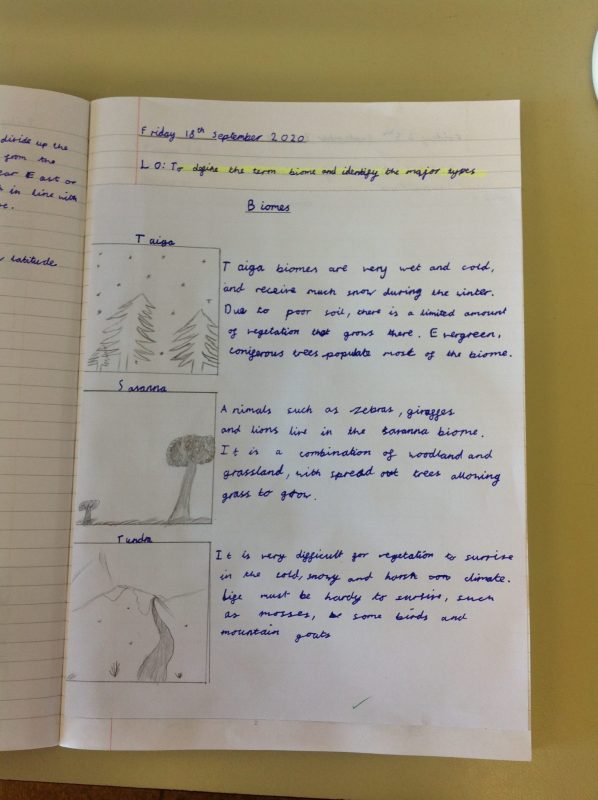 divide up the
from the
ear East or
h in line with
e.
latitude
Friday 18th September 2020
LO: To define the term biome and identify the major types
Biomes
Taiga
Taiga biomes are very wet and cold,
and receive much snow during the winter.
Due to poor soil, there is a limited amount
of vegetation that grows there. Evergreen,
coniferous trees populate most of the biome.
Savanna
Animals such as zebras, giraffes
and lions live in the savanna biome.
It is a combination of woodland and
grassland, with spread out trees allowing
grass to grow.
Tundra
It is very difficult for vegetation to survive
in the cold, snowy and harsh climate.
Life must be hardy to survive, such
as mosses, some birds and
mountain goats
2